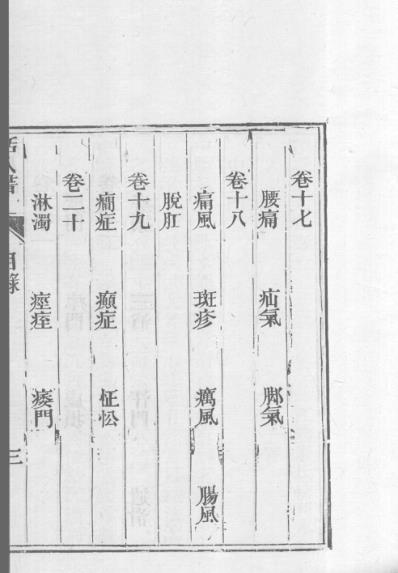 卷十七
腰痛 疝氣 脚氣
卷十八
痛風 斑疹 癘風 腸風
脫肛
卷十九
癇症 癲症 怔忪
卷二十
淋濁 痙痓 痿門
目錄 三